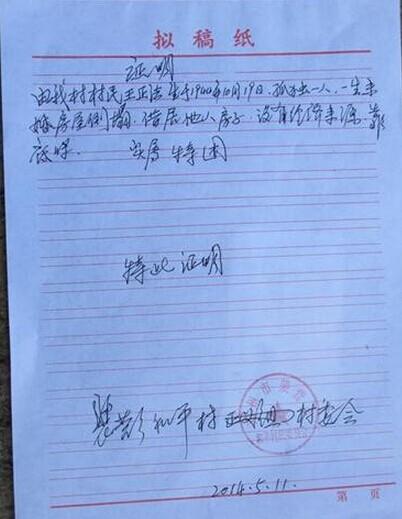 拟稿纸
证明
由我村村民王正洁生于1940年10月19日,孤独一人,一生未
婚房屋倒塌,借居他人房子,没有经济来源,靠
低保. 实属特困
特此证明
和平村 村委会
2014.5.11.
第 页